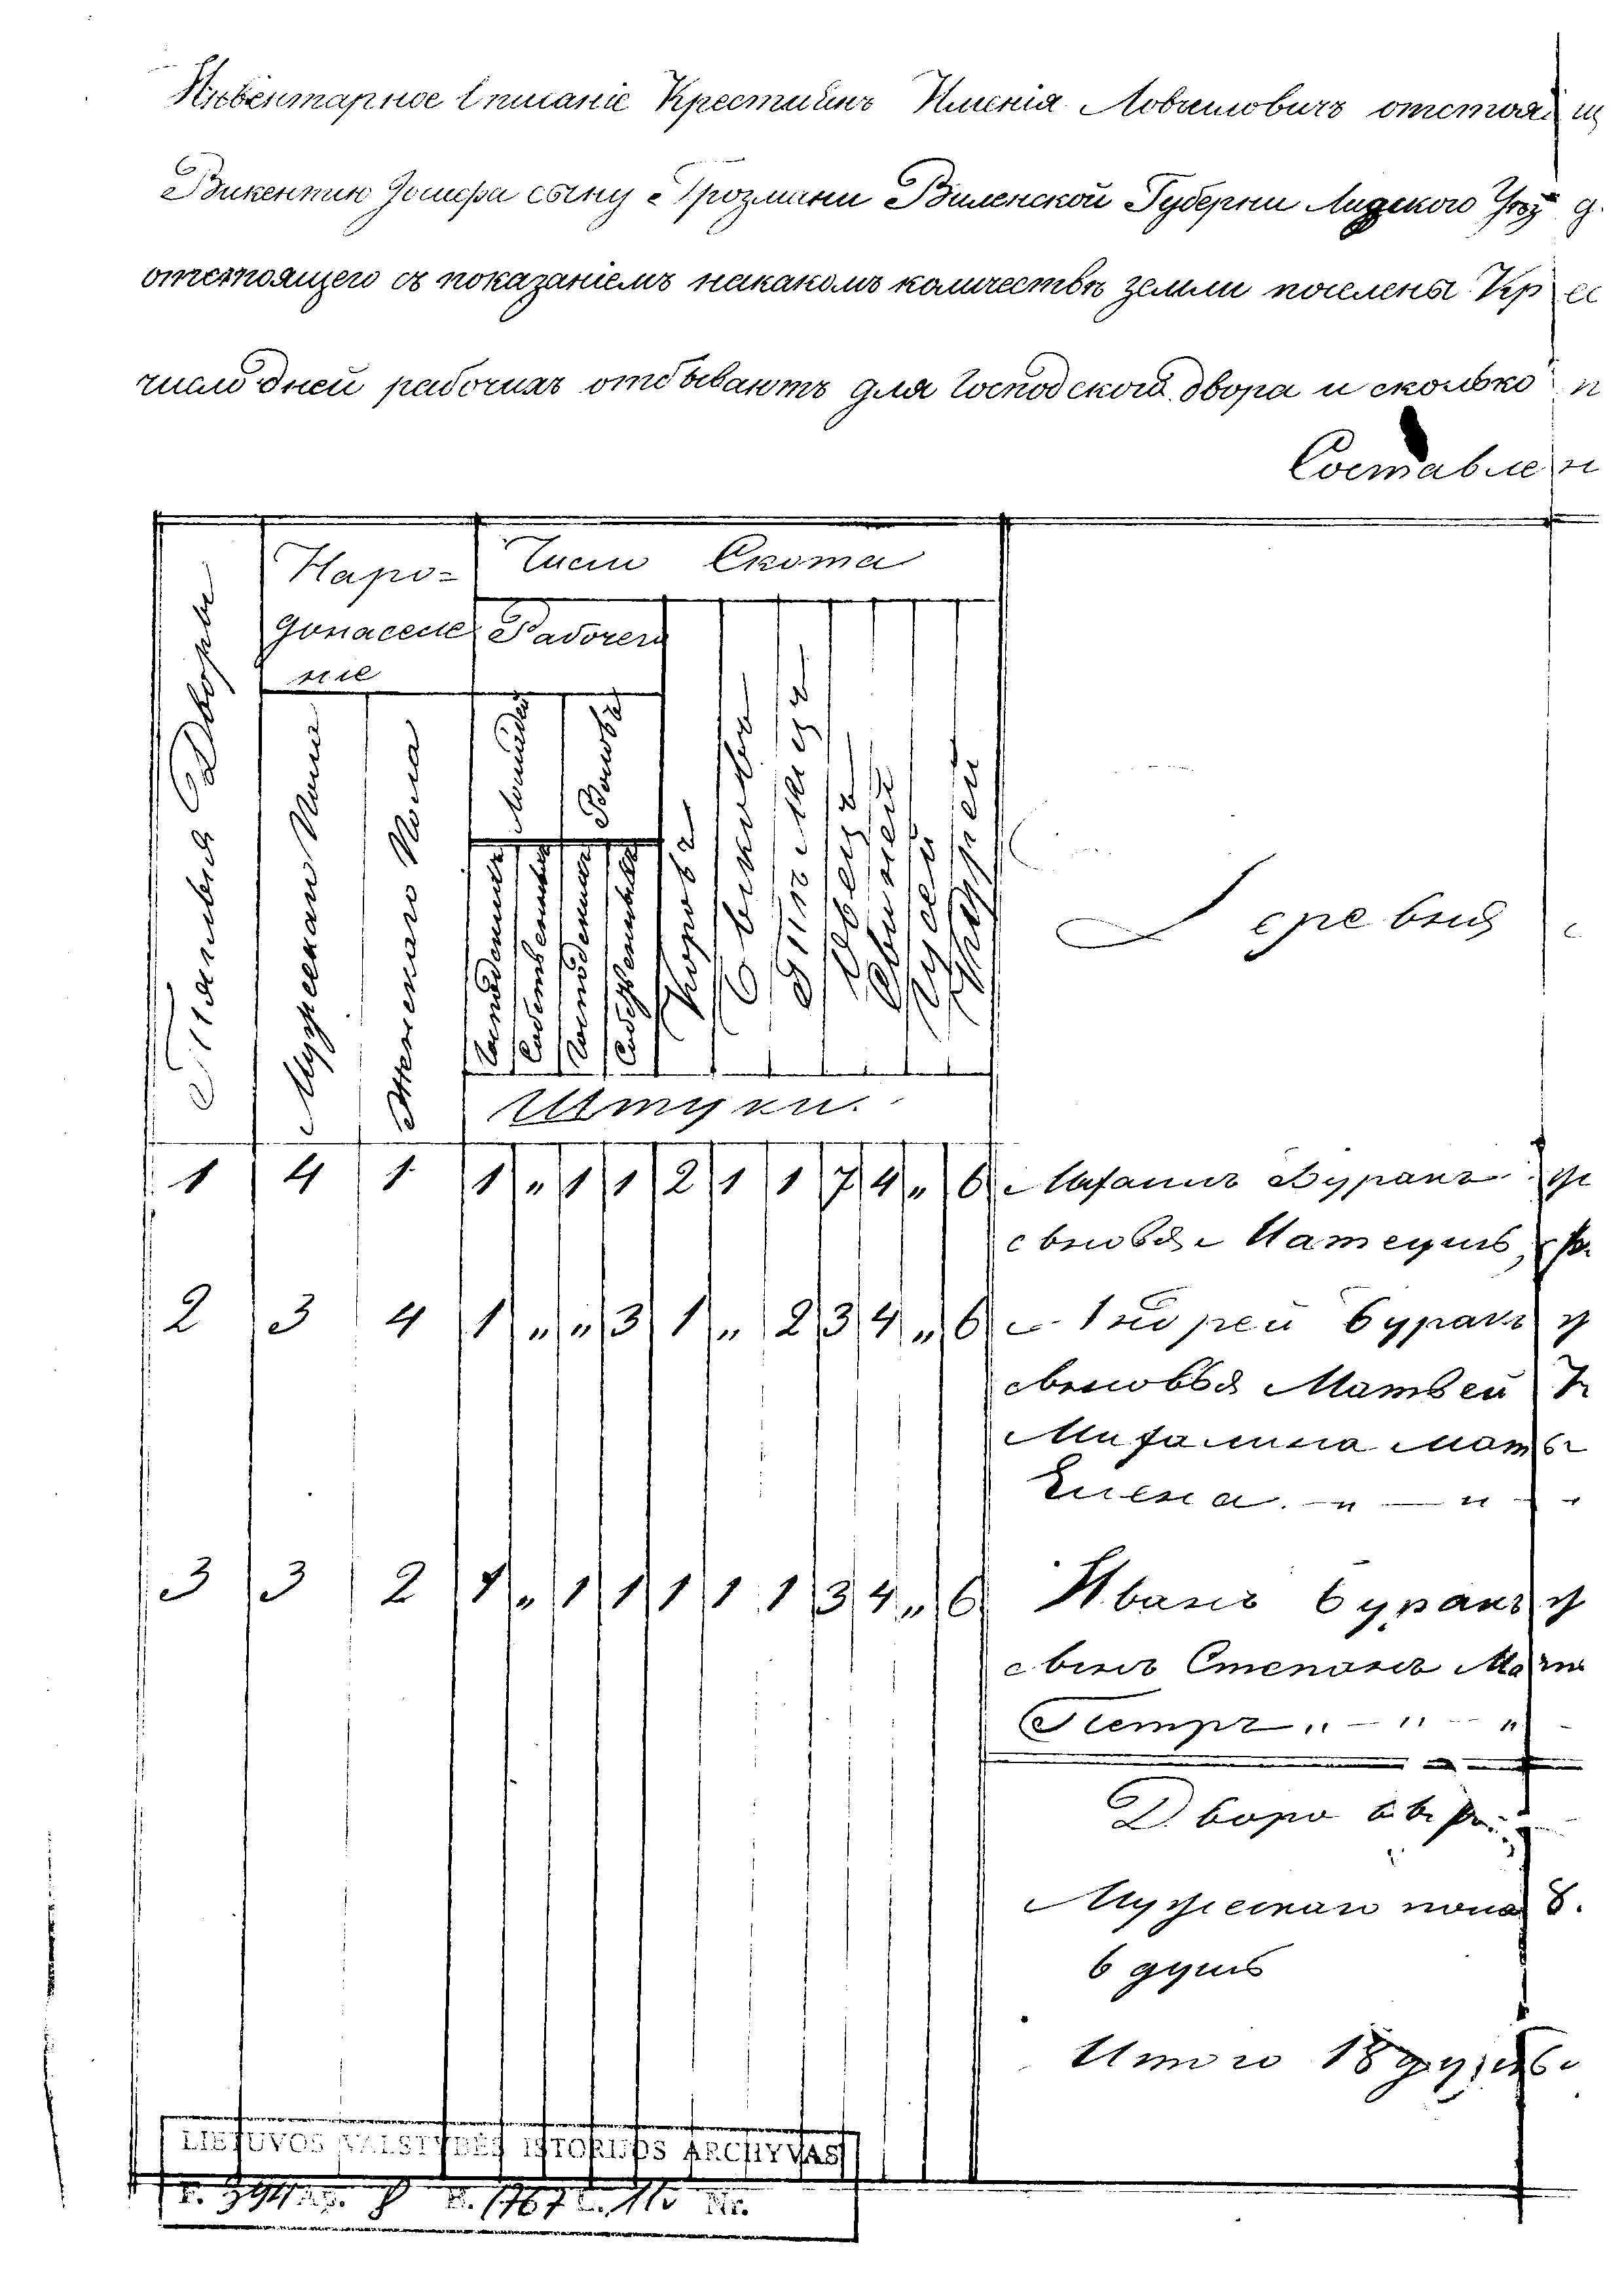 Инвентарное Описаніе Крестьянъ Именія Ловчиловичъ отстоящ
Викентію Іосифа сыну Грозмани Виленской Губерни Лидского Уѣзд
отстоящего съ показаніемъ накакомъ количествѣ земли поселены Крес
число дней рабочихъ отбываютъ для Господской двора и сколько п
Составлен
Тяглыя Дворы
Наро=
донаселе
ние
Мужескаго Пола
Женскаго Пола
Число Скота
Рабочего
Лошадей
Воловъ
Господскихъ
Собственныхъ
Господскихъ
Собственныхъ
Коровъ
Быковъ
Овецъ
Свиней
Гусей
Курей
Штуки.
Деревня
1 4 1 1 „ 1 1 2 1 1 7 4 „ 6 Михаилъ Буракъ у
сыновья Матеушъ,
2 3 4 1 „ „ 3 1 „ 2 3 4 „ 6 Андрей Буракъ у
сыновья Матвей
Михалина мать
Елена. „ — „
3 3 2 1 „ 1 1 1 1 1 3 4 „ 6 Иванъ Буракъ у
сынъ Степанъ
Петръ „ — „ — „
Дворо
Мужескаго пола 8.
6 душъ
Итого 18 душъ
LIETUVOS VALSTYBĖS ISTORIJOS ARCHYVAS
F. 394 Ap. 8 B. 1767 L. 110 Nr.